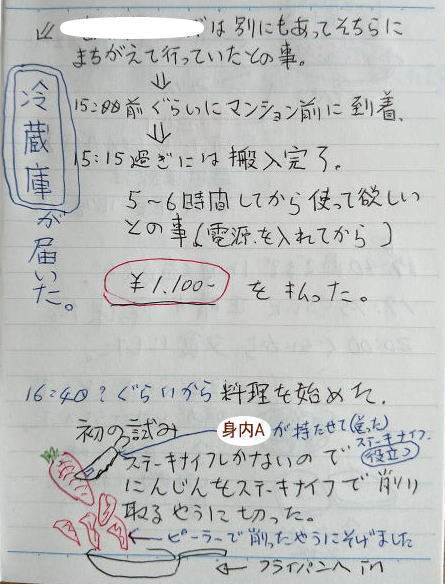 は別にもあってそちらに
まちがえて行っていたとの事。
⇓
15:00前ぐらいにマンション前に到着、
⇓
15:15過ぎには搬入完了。
5〜6時間してから使って欲しい
との事(電源を入れてから)
¥1.100-を払った。
冷蔵庫が届いた。
16:40?ぐらいから料理を始めた.
初の試み
身内Aが持たせて(貰った)
ステーキナイフ
役立つ
ステーキナイフしかないので
にんじんをステーキナイフで削り
取るやうに切った。
←ピーラーで削ったやうにそげました
←フライパンへin